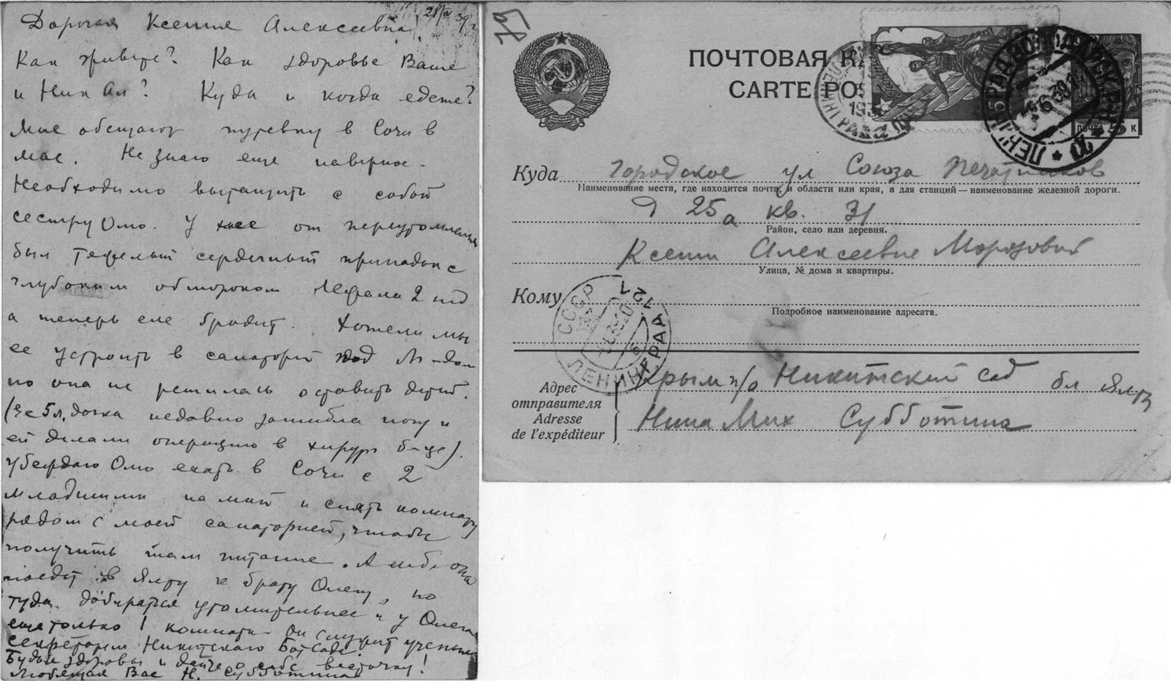 Дорогая Ксения Алексеевна,
Как живете? Как здоровье Ваше
и Ник Ал? Куда и когда едете?
Мне обещают путевку в Сочи в
мае. Не знаю еще наверное.
Необходимо вытащить с собой
сестру Олю. У нее от переутомления
был тяжелый сердечный припадок с
глубоким обмороком. Лежала 2 нед
а теперь еле бродит. Хотели мы
ее устроить в санаторий под Л-дом
но она не решилась оставить детей.
(Ее 5 л. дочка недавно зашибла ногу и
ей делали операцию в хирург б-це).
Убеждаю Олю ехать в Сочи с 2
младшими на май и снять комнату
рядом с моей санаторией, чтобы
получить там питание. А либо она
поедет в Ялту к брату Олегу, но
туда добираться утомительнее и у Олега
еще только 1 комната. Он служит ученым
секретарем Никитского Бот Сада.
Будьте здоровы и дайте о себе весточку!
Любящая Вас Н. Субботина
ПОЧТОВАЯ КА
CARTE POS
ЛЕНИНГРАД
Куда Городское ул Союза Печатников
Наименование места, где находится почта, и области или края, а для станций — наименование железной дороги.
д 25а кв. 31
Район, село или деревня.
Ксении Алексеевне Морозовой
Улица, № дома и квартиры.
Кому
Подробное наименование адресата.
СССР
ЛЕНИНГРАД 121
Адрес отправителя
Adresse de l'expéditeur
Крым п/о Никитский сад бл Ялты
Нина Мих Субботина